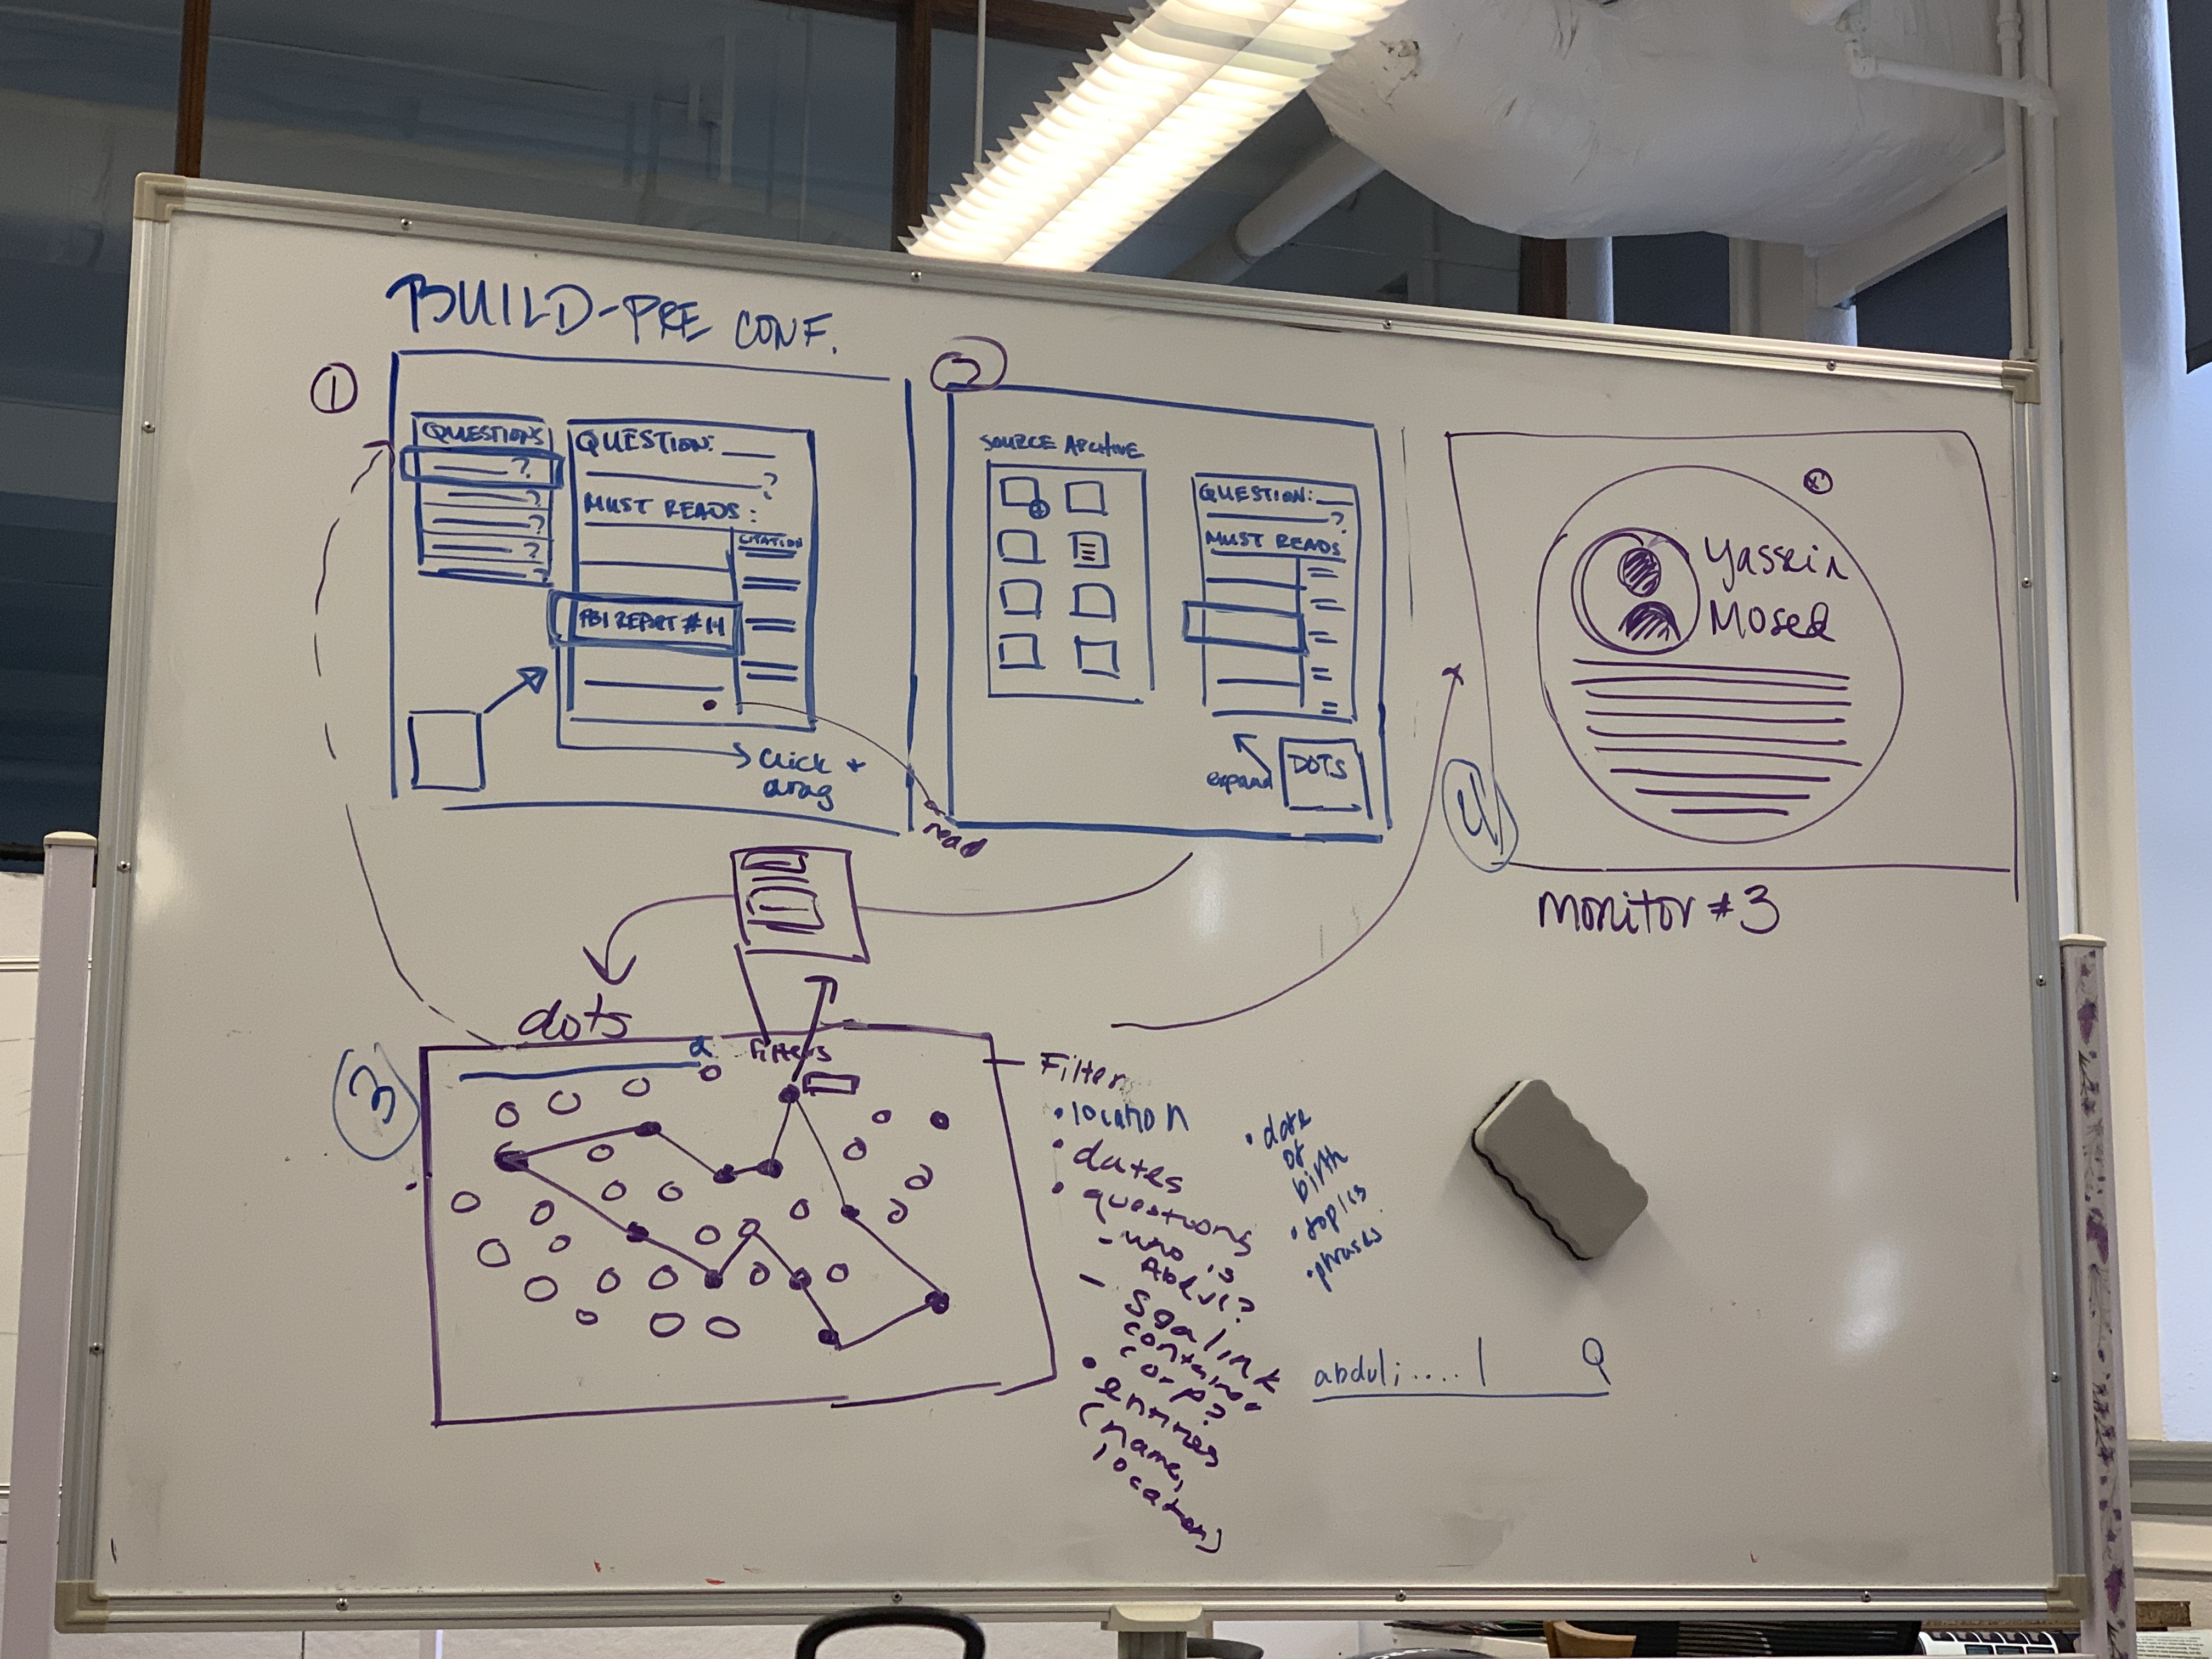 BUILD-PRE CONF.
①
QUESTIONS
?
?
?
?
?
QUESTION:
?
MUST READS:
CITATION
FBI REPORT #14
click +
drag
read
②
SOURCE ARCHIVE
QUESTION:
?
MUST READS
expand
DOTS
④
Yassein
Mosed
x
monitor #3
dots
③
filters
Filter
• location
• dates
• questions
- who is
Abdul?
- Sgalink
container
corp?
• entities
(name,
location)
• date
of
birth
• topics
• phrases
abduli....|